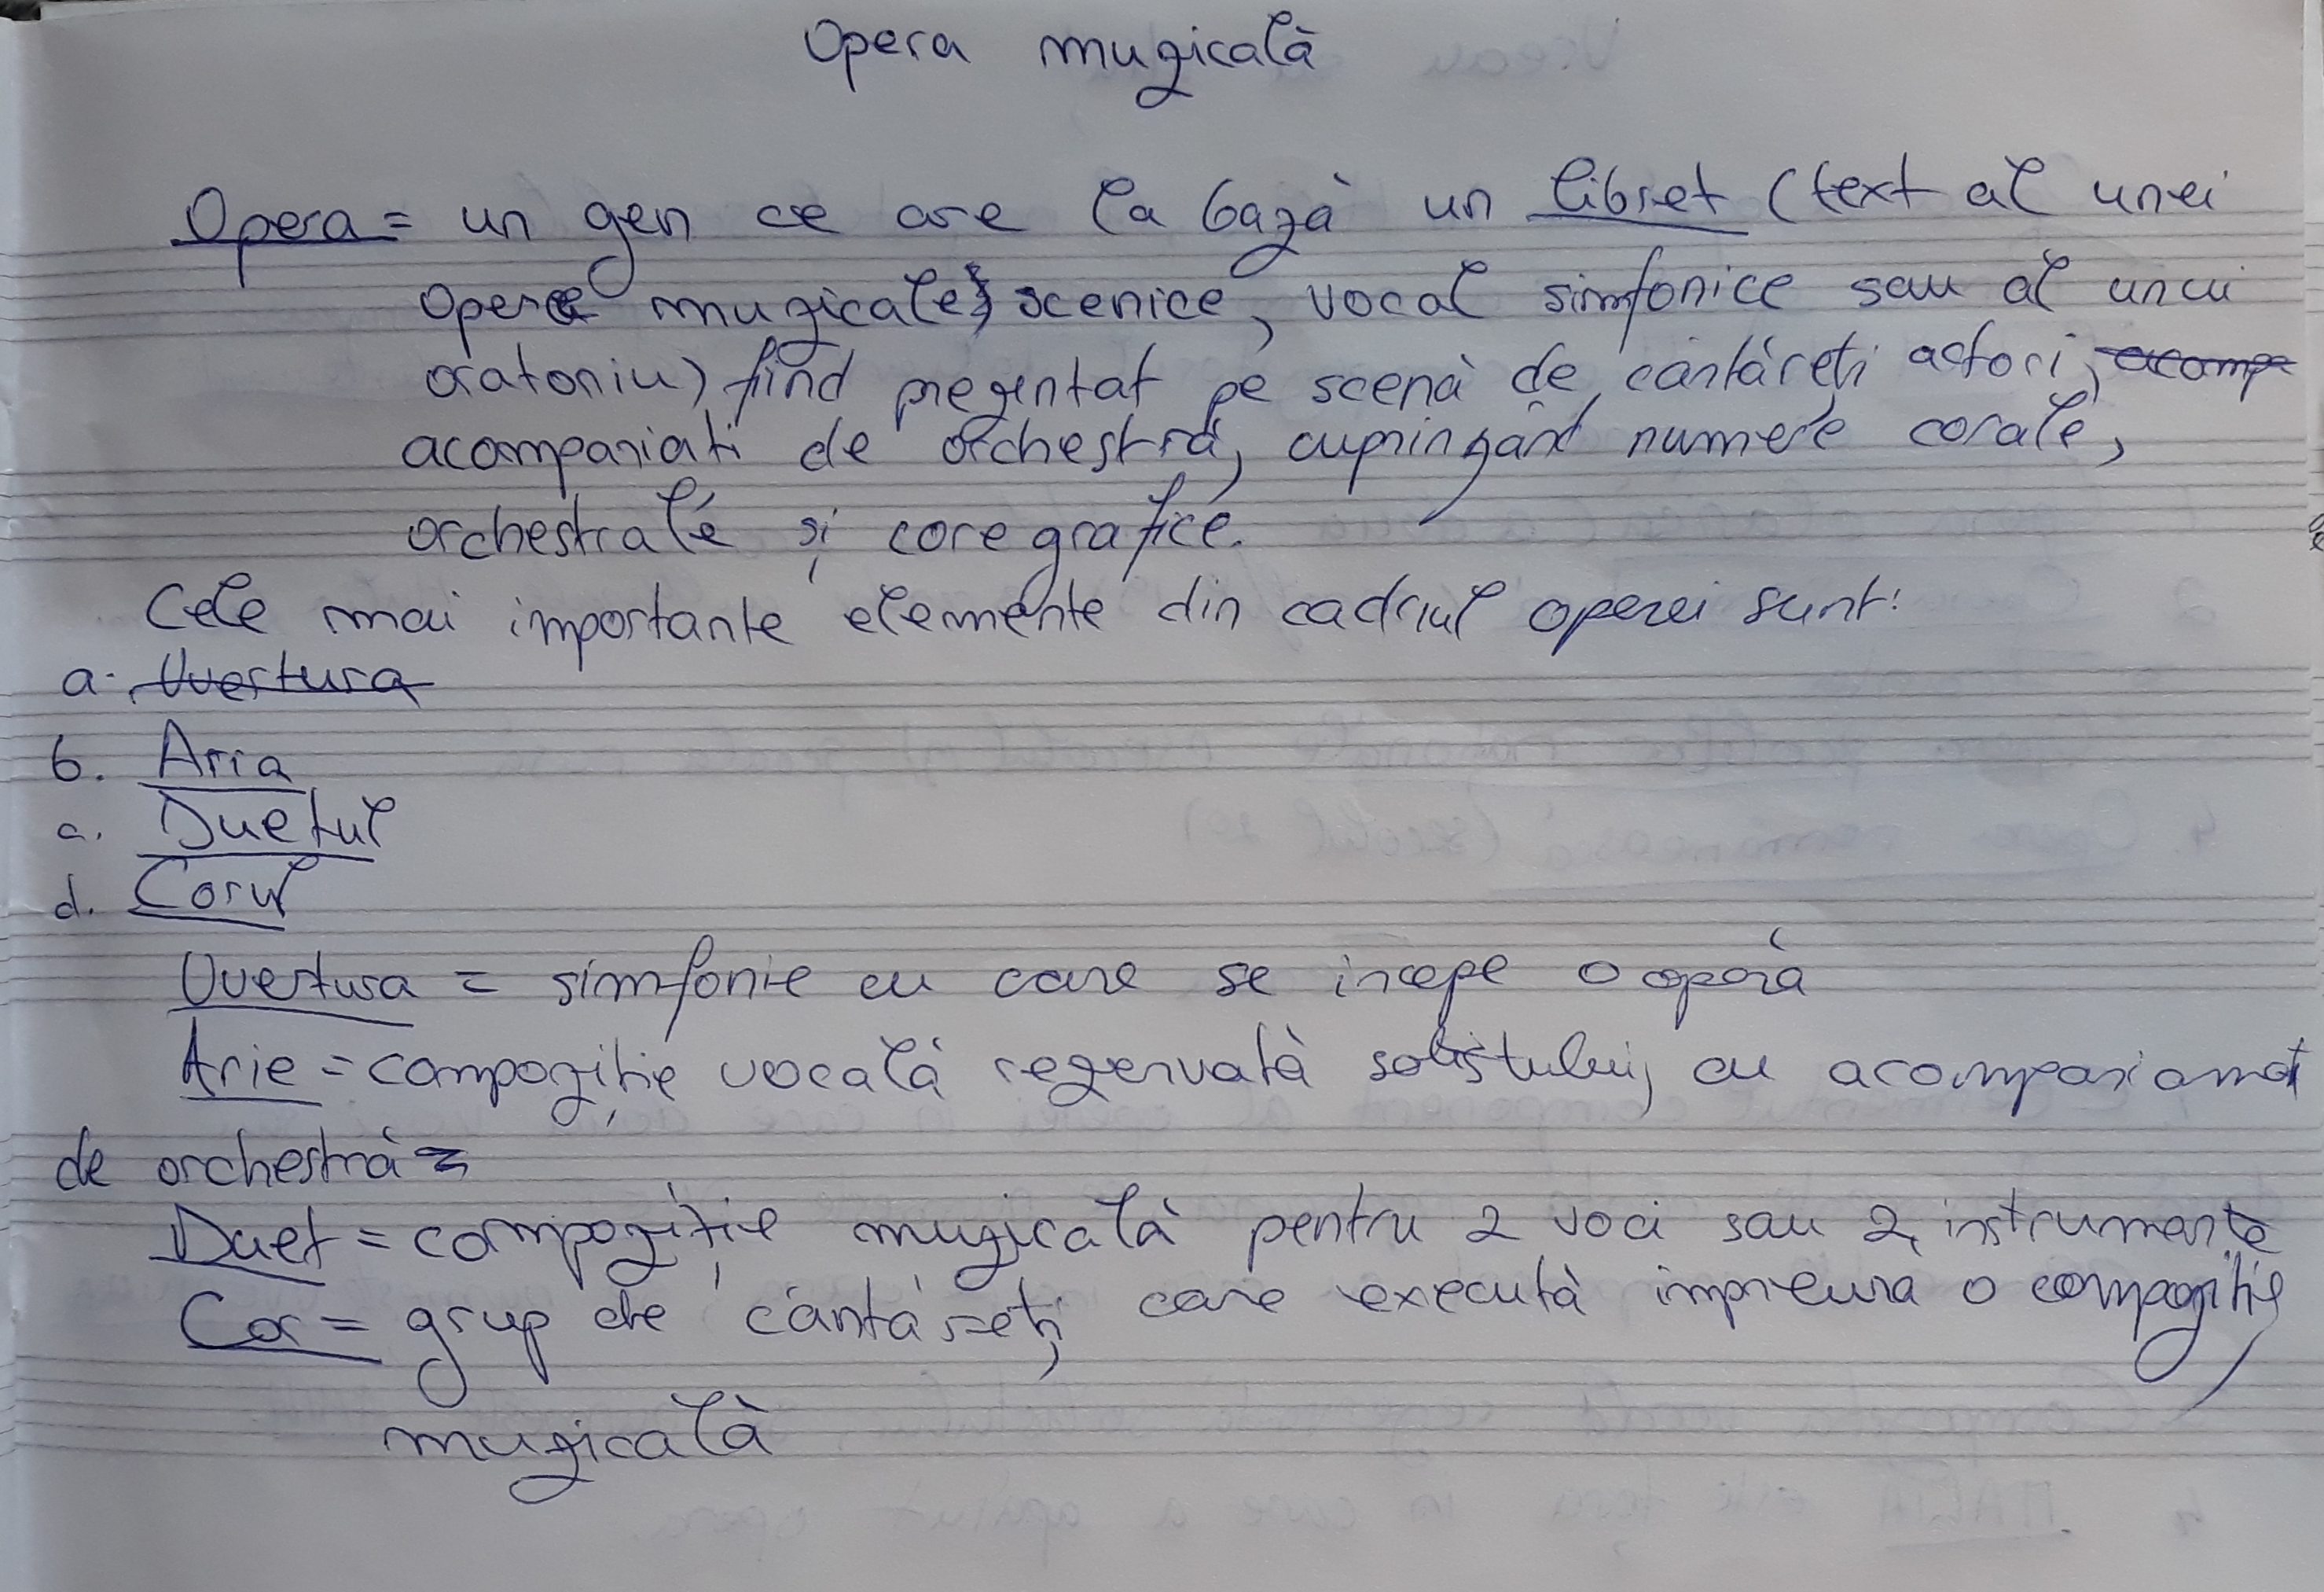 Opera muzicală
Opera = un gen ce are la bază un libret (text al unei
opere muzicale, scenice, vocal simfonice sau al unui
oratoriu) fiind prezentat pe scenă de cântăreți actori, acomp
acompaniați de orchestră, cuprinzând numere corale,
orchestrale și coregrafice.
Cele mai importante elemente din cadrul operei sunt:
a. Uvertura
b. Aria
c. Duetul
d. Corul
Uvertura = simfonie cu care se incepe o operă
Arie = compoziție vocală rezervată solistului, cu acompaniamet
de orchestră
Duet = compoziție muzicală pentru 2 voci sau 2 instrumente
Cor = grup de cântăreți, care execută impreuna o compoziție
muzicală